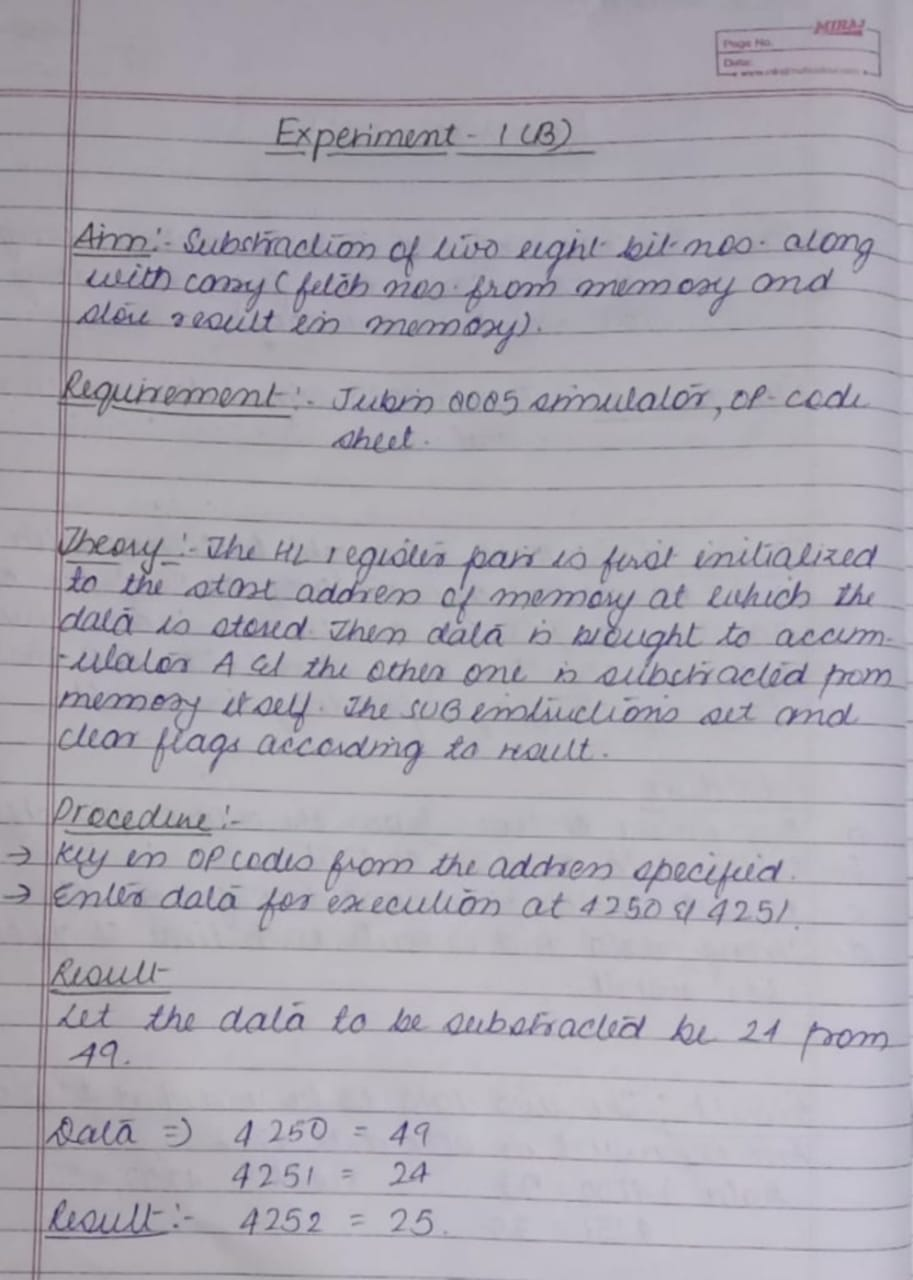 MIRAJ
Page No.
Date:
Experiment - 1(B)
Aim:- Substraction of two eight bit nos. along
with carry (fetch nos. from memory and
store result in memory).
Requirement:- Jubin 8085 simulator, OP-code
sheet.
Theory:- The HL register pair is first initialized
to the start address of memory at which the
data is stored. Then data is brought to accum-
-ulator A & the other one is substracted from
memory itself. The SUB instructions set and
clear flags according to result.
Procedure:-
→ Key in OP codes from the address specified.
→ Enter data for execution at 4250 & 4251.
Result-
Let the data to be substracted be 24 from
49.
Data => 4250 = 49
4251 = 24
Result:- 4252 = 25.